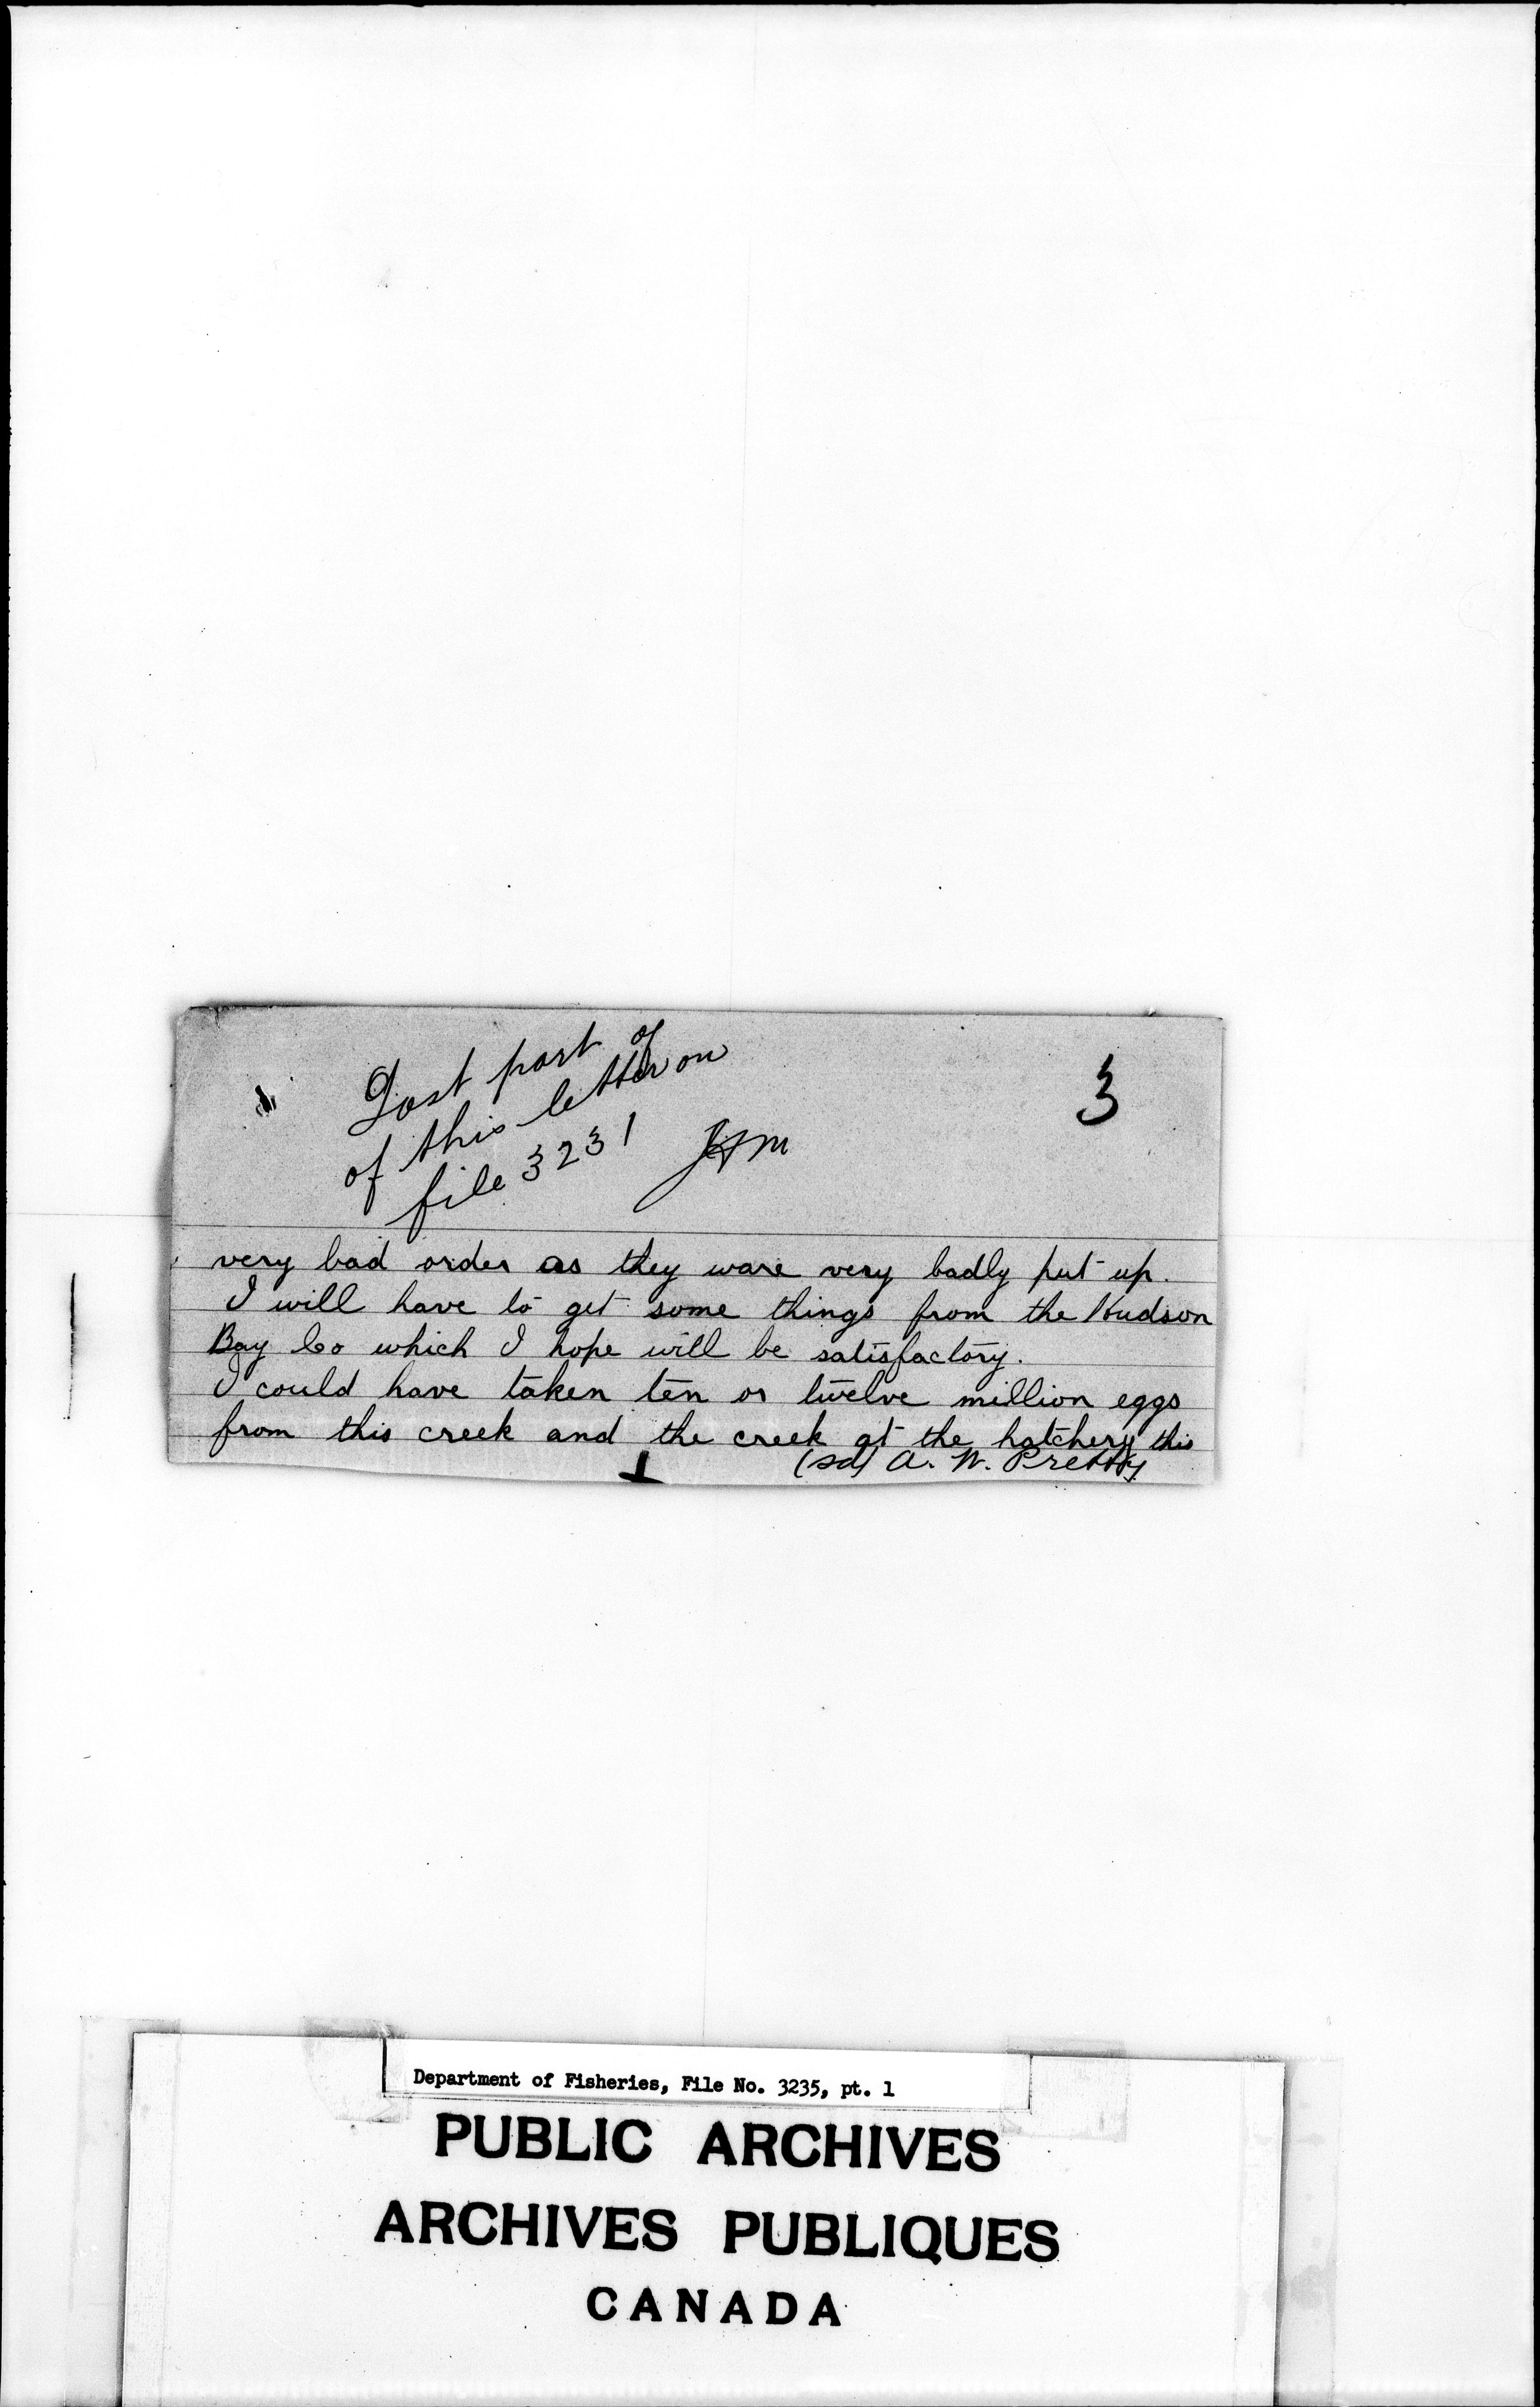 Last part of
of this letter on
file 3231
3
very bad order as they ware very badly put up.
I will have to get some things from the Hudson
Bay Co which I hope will be satisfactory.
I could have taken ten or twelve million eggs
from this creek and the creek at the hatchery this
(sd) A. W. Pretty
Department of Fisheries, File No. 3235, pt. 1
PUBLIC ARCHIVES
ARCHIVES PUBLIQUES
CANADA